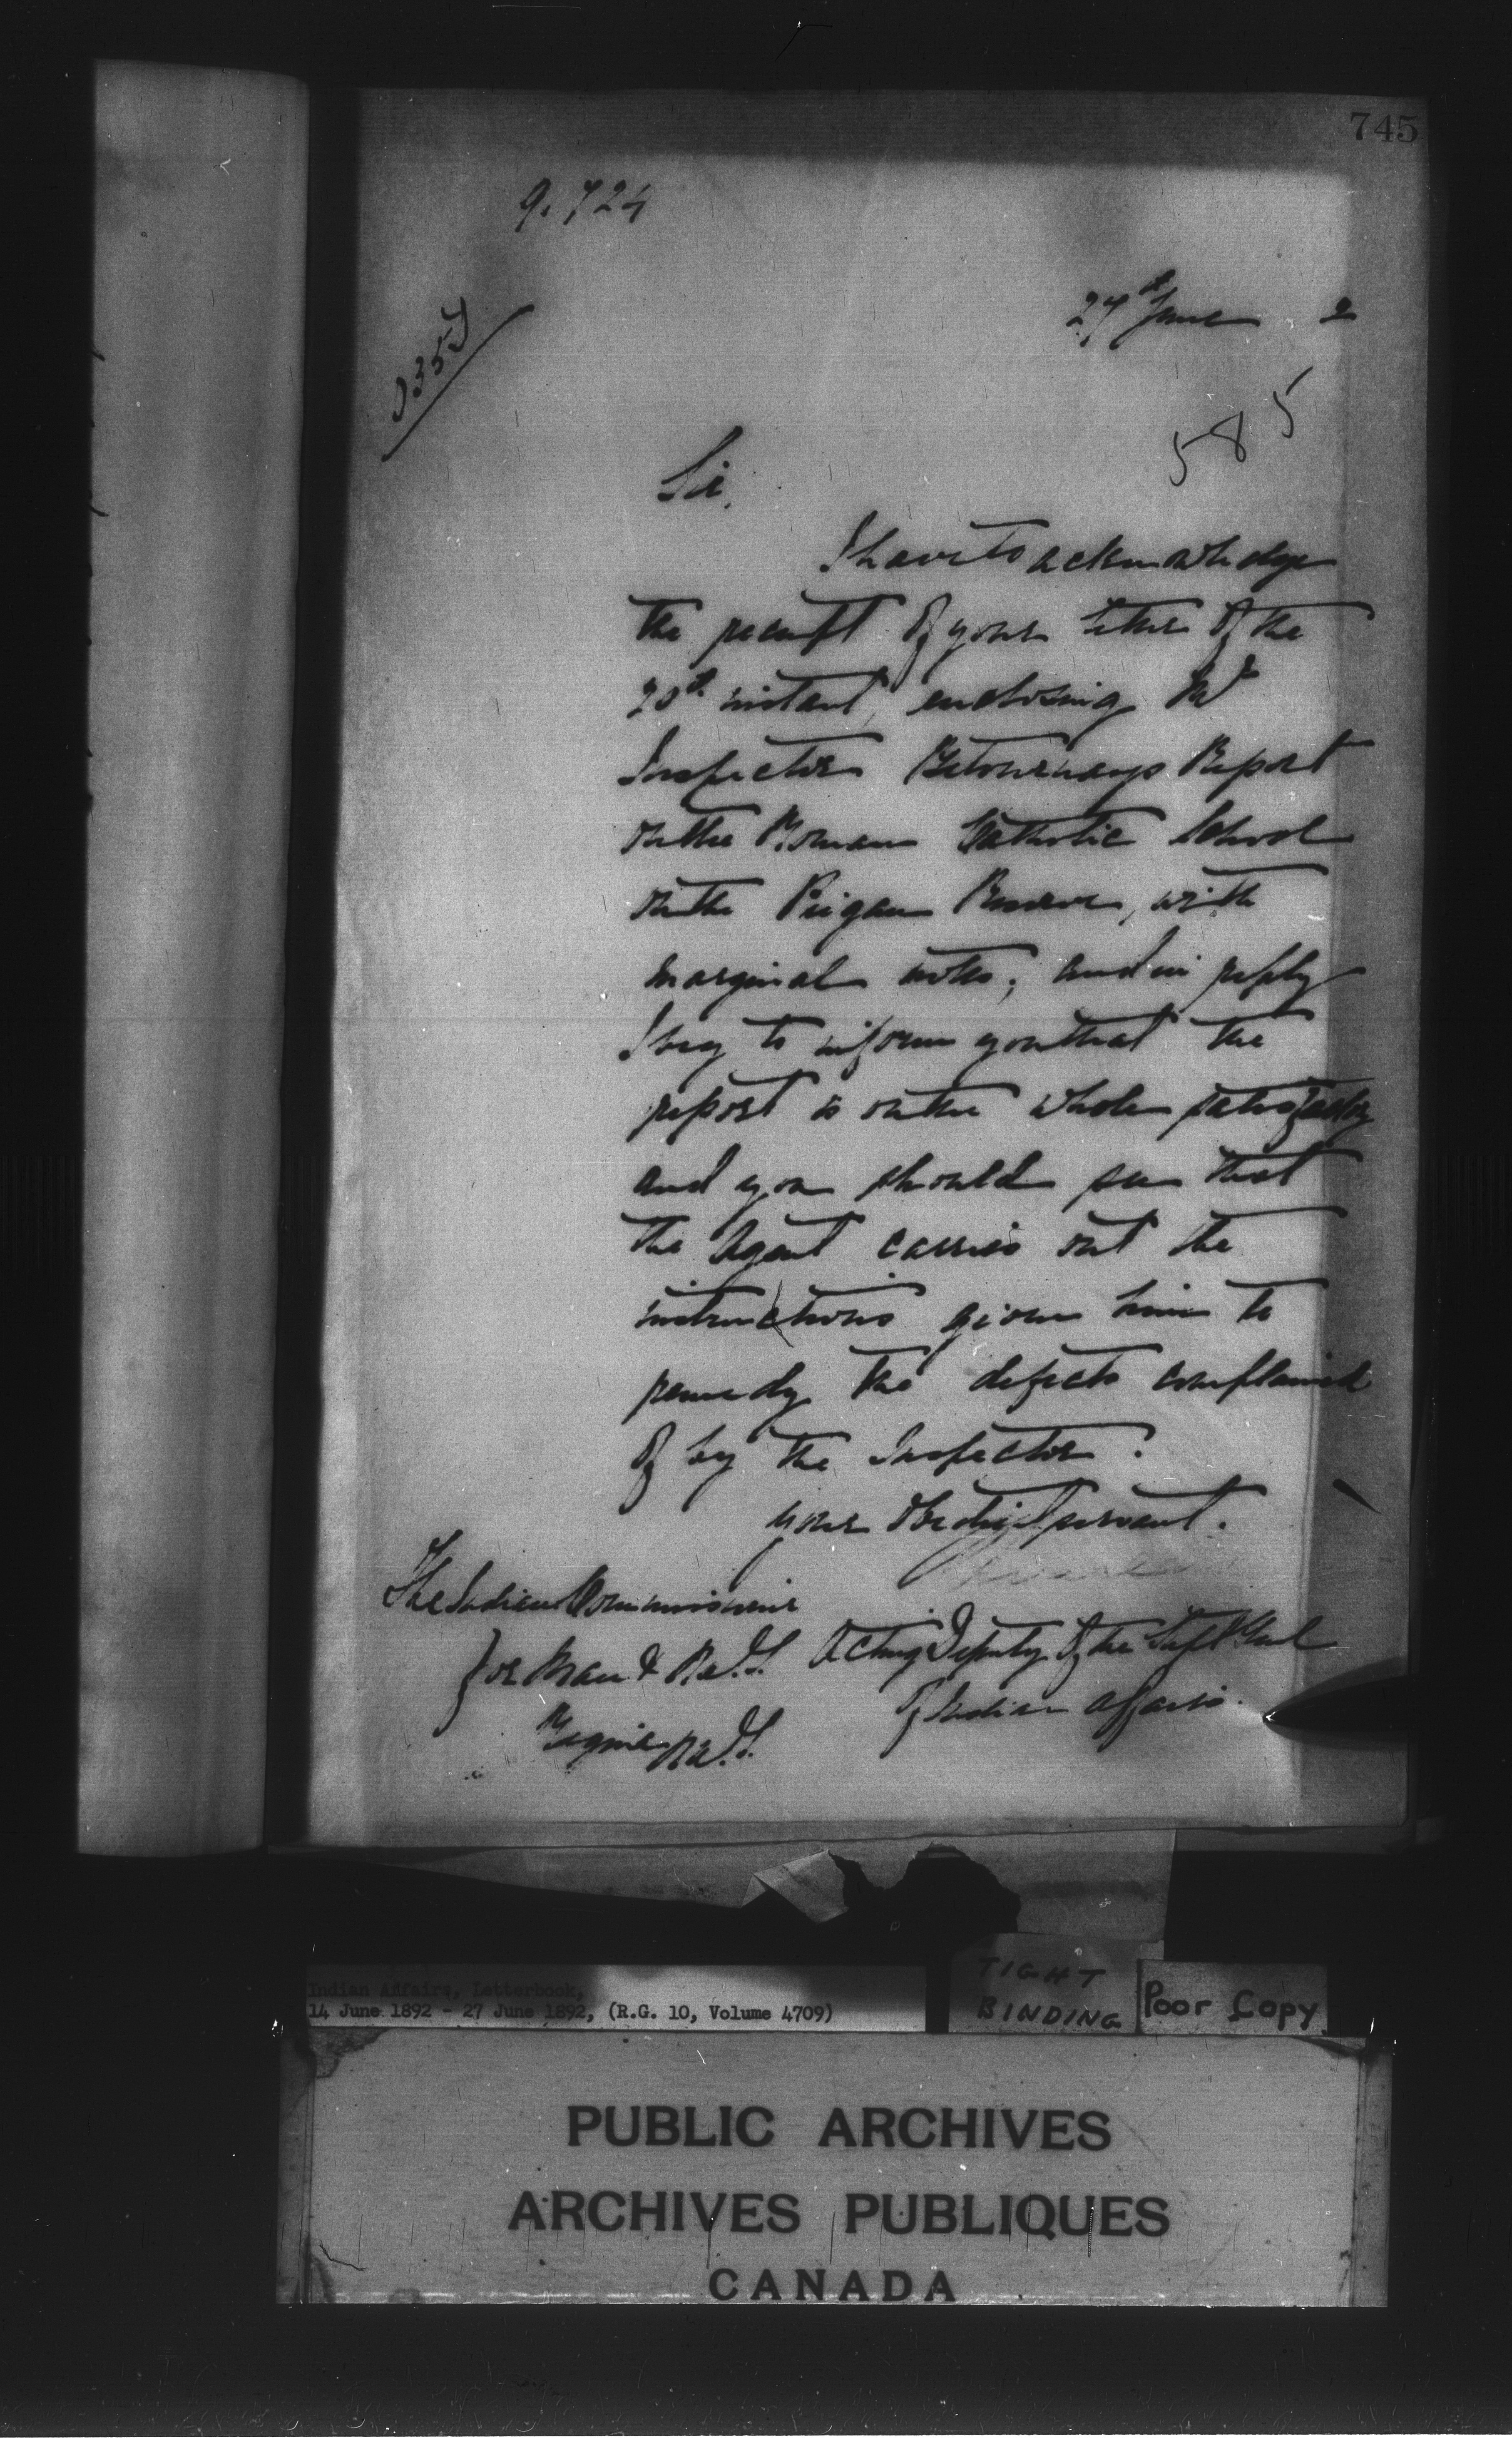 745
9.724
27th June 2
585
Sir,
I have to acknowledge
the receipt of your letter of the
20th instant, enclosing Mr
Inspector Betournays Report
on the Roman Catholic School
on the Peigan Reserve, with
marginal notes; and in reply
I beg to inform you that the
report is on the whole satisfactory
and you should see that
the Agent carries out the
instructions given him to
remedy the defects complained
of by the Inspector.
your obedient servant.
The Indian Commissioner
for Man & N.W.T.
Regina N.W.T.
Acting Deputy of the Supt Genl
of Indian Affairs.
Indian Affairs, Letterbook,
14 June 1892 - 27 June 1892, (R.G. 10, Volume 4709)
TIGHT
BINDING
Poor Copy
PUBLIC ARCHIVES
ARCHIVES PUBLIQUES
CANADA